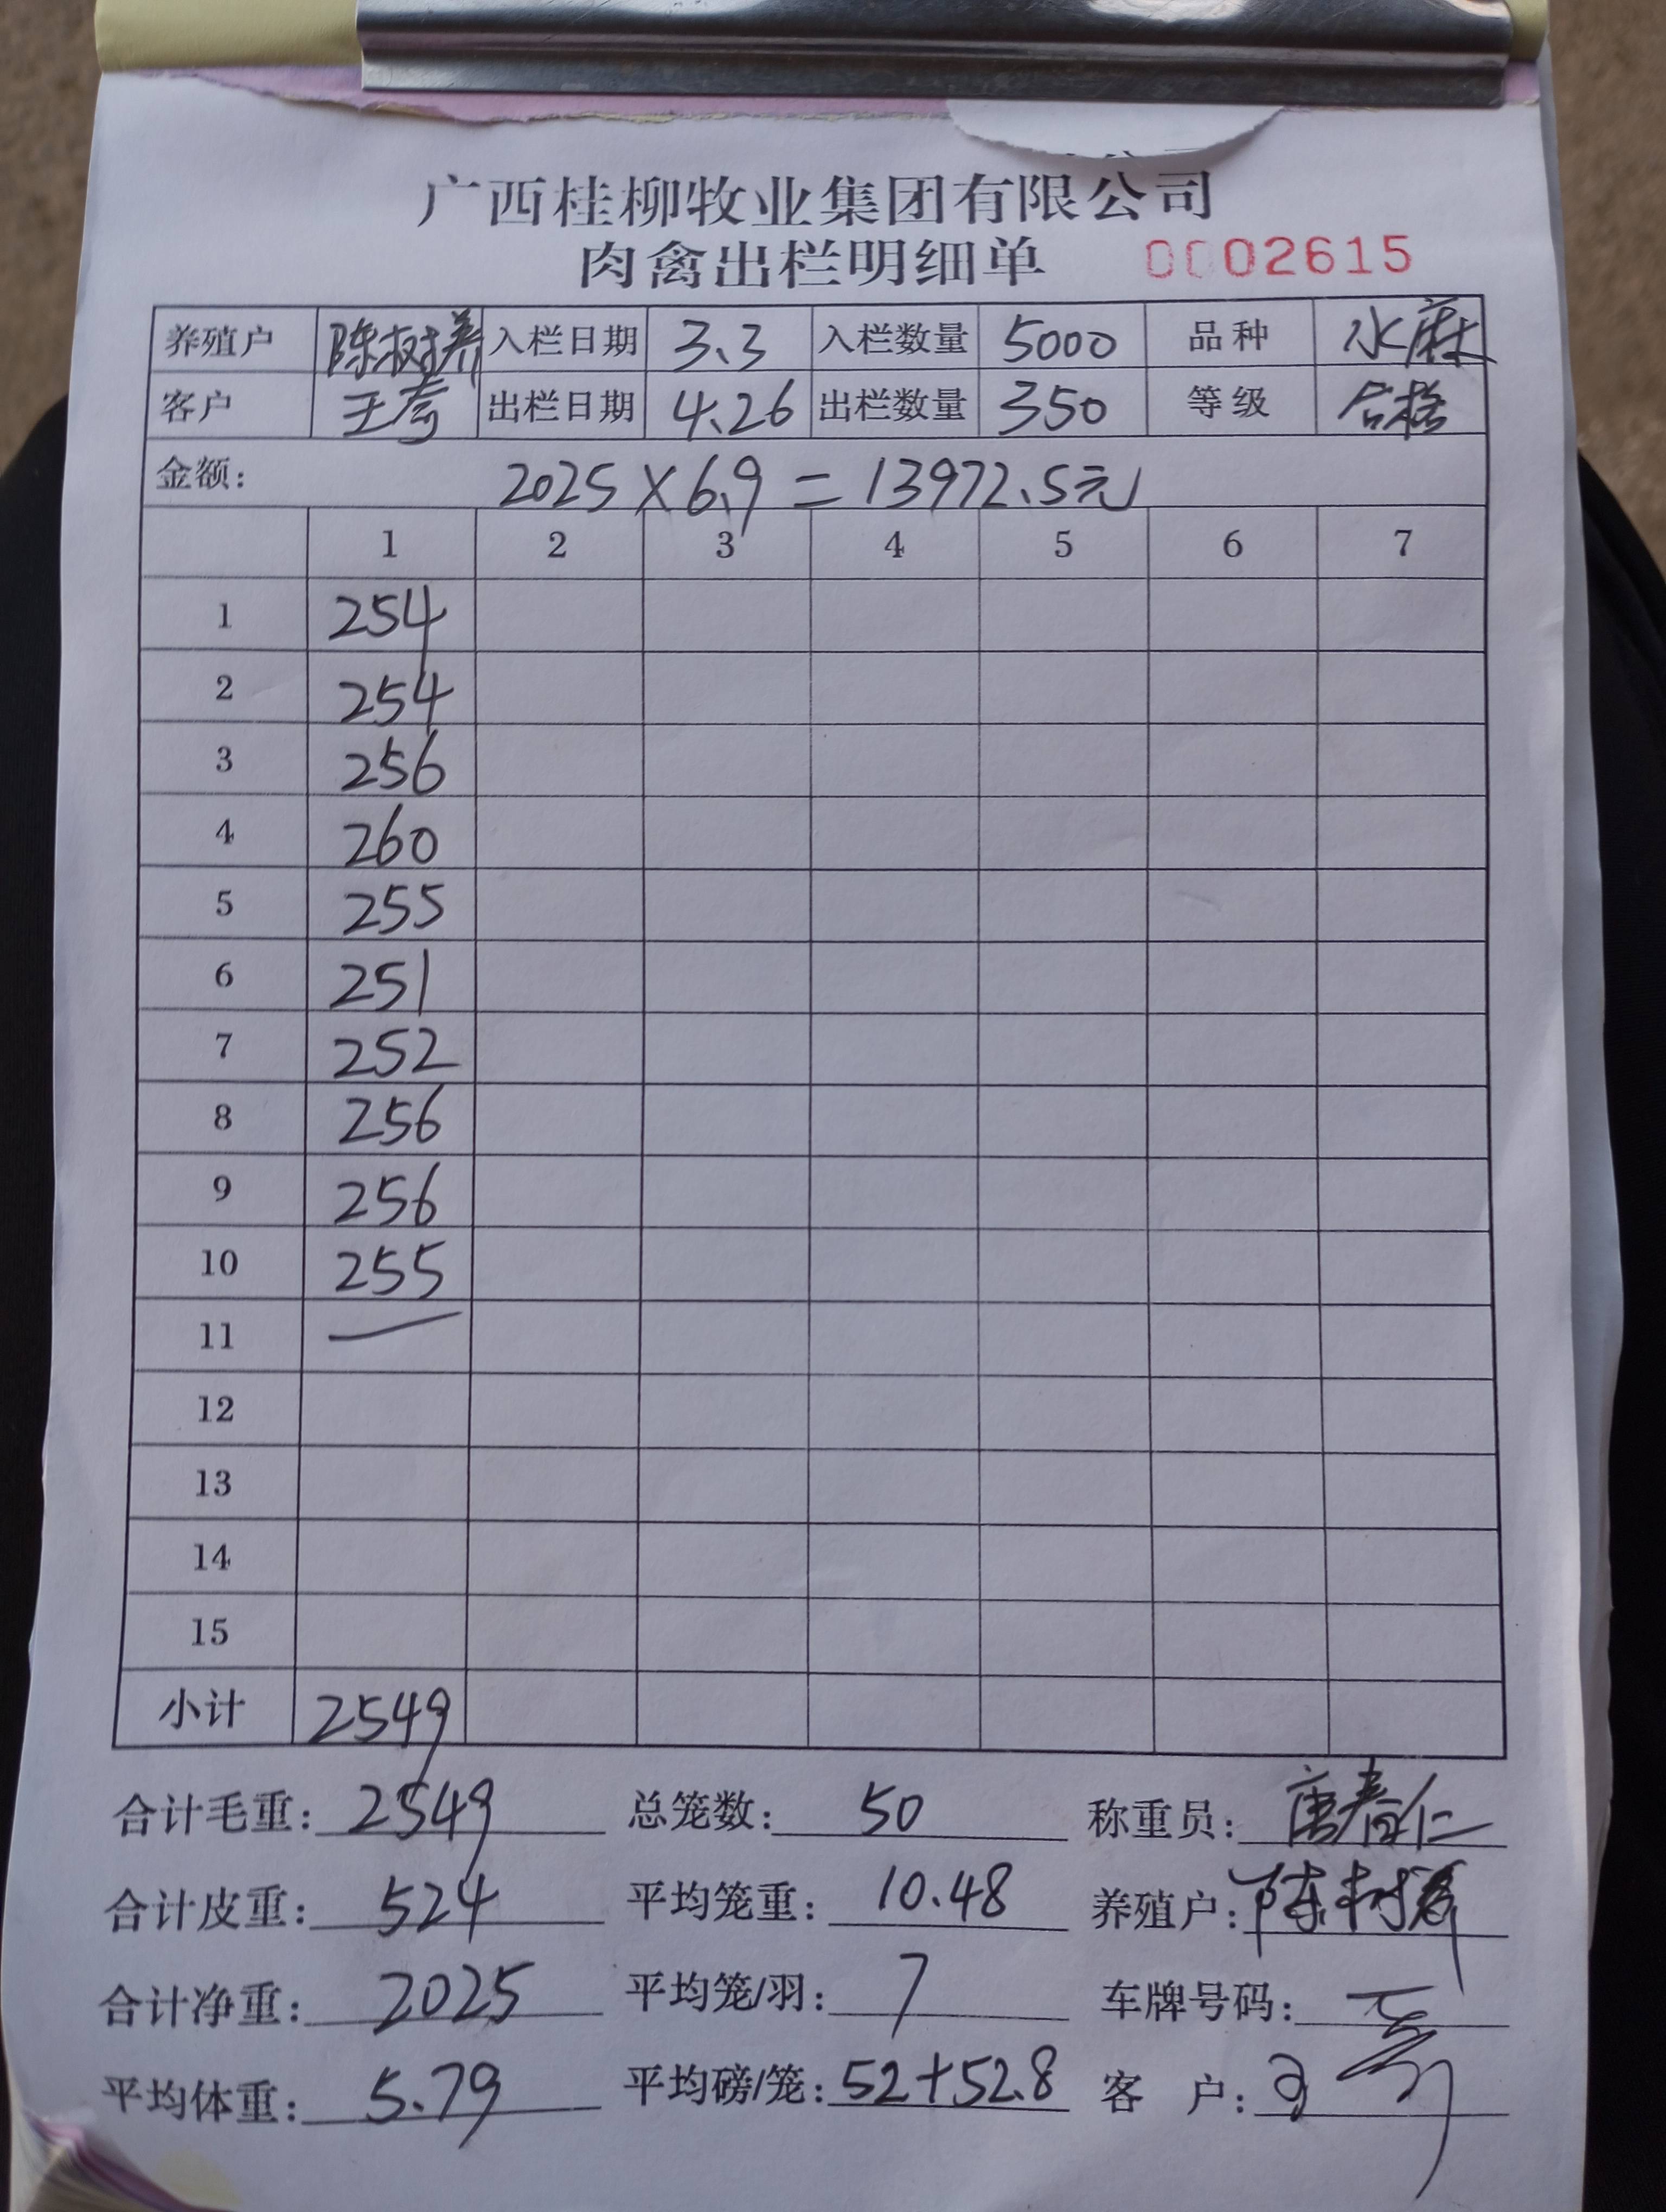 广西桂柳牧业集团有限公司
肉禽出栏明细单 0002615
养殖户 陈树养 入栏日期 3.3 入栏数量 5000 品种 水麻
客户 王 出栏日期 4.26 出栏数量 350 等级 合格
金额: 2025×6.9=13972.5元
1 2 3 4 5 6 7
1 254
2 254
3 256
4 260
5 255
6 251
7 252
8 256
9 256
10 255
11 —
12
13
14
15
小计 2549
合计毛重: 2549 总笼数: 50 称重员: 唐春仁
合计皮重: 524 平均笼重: 10.48 养殖户: 陈树养
合计净重: 2025 平均笼/羽: 7 车牌号码:
平均体重: 5.79 平均磅/笼: 52+52.8 客户: